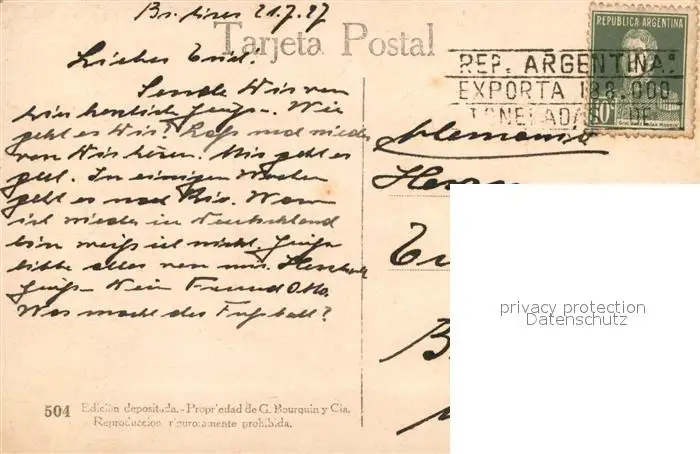 Bs. Aires 21.7.27
Tarjeta Postal
Lieber Erich!
Sende Dir von
hier herzlich Grüße. Wie
geht es Dir? Laß mal wieder
von Dir hören. Mir geht es
gut. In einigen Wochen
geht es nach Rio. Wann
ich wieder in Deutschland
bin weiß ich nicht. Grüße
bitte alles von mir. Herzliche
Grüße Dein Freund Otto.
Was macht der Fußball?
504 Edición depositada.-Propriedad de G. Bourquin y Cia.
Reproduccion rigurosamente prohibida.
REPUBLICA ARGENTINA
REP. ARGENTINA:
EXPORTA 188.000
TONELADAS DE
Alemania
Herrn
privacy protection
Datenschutz